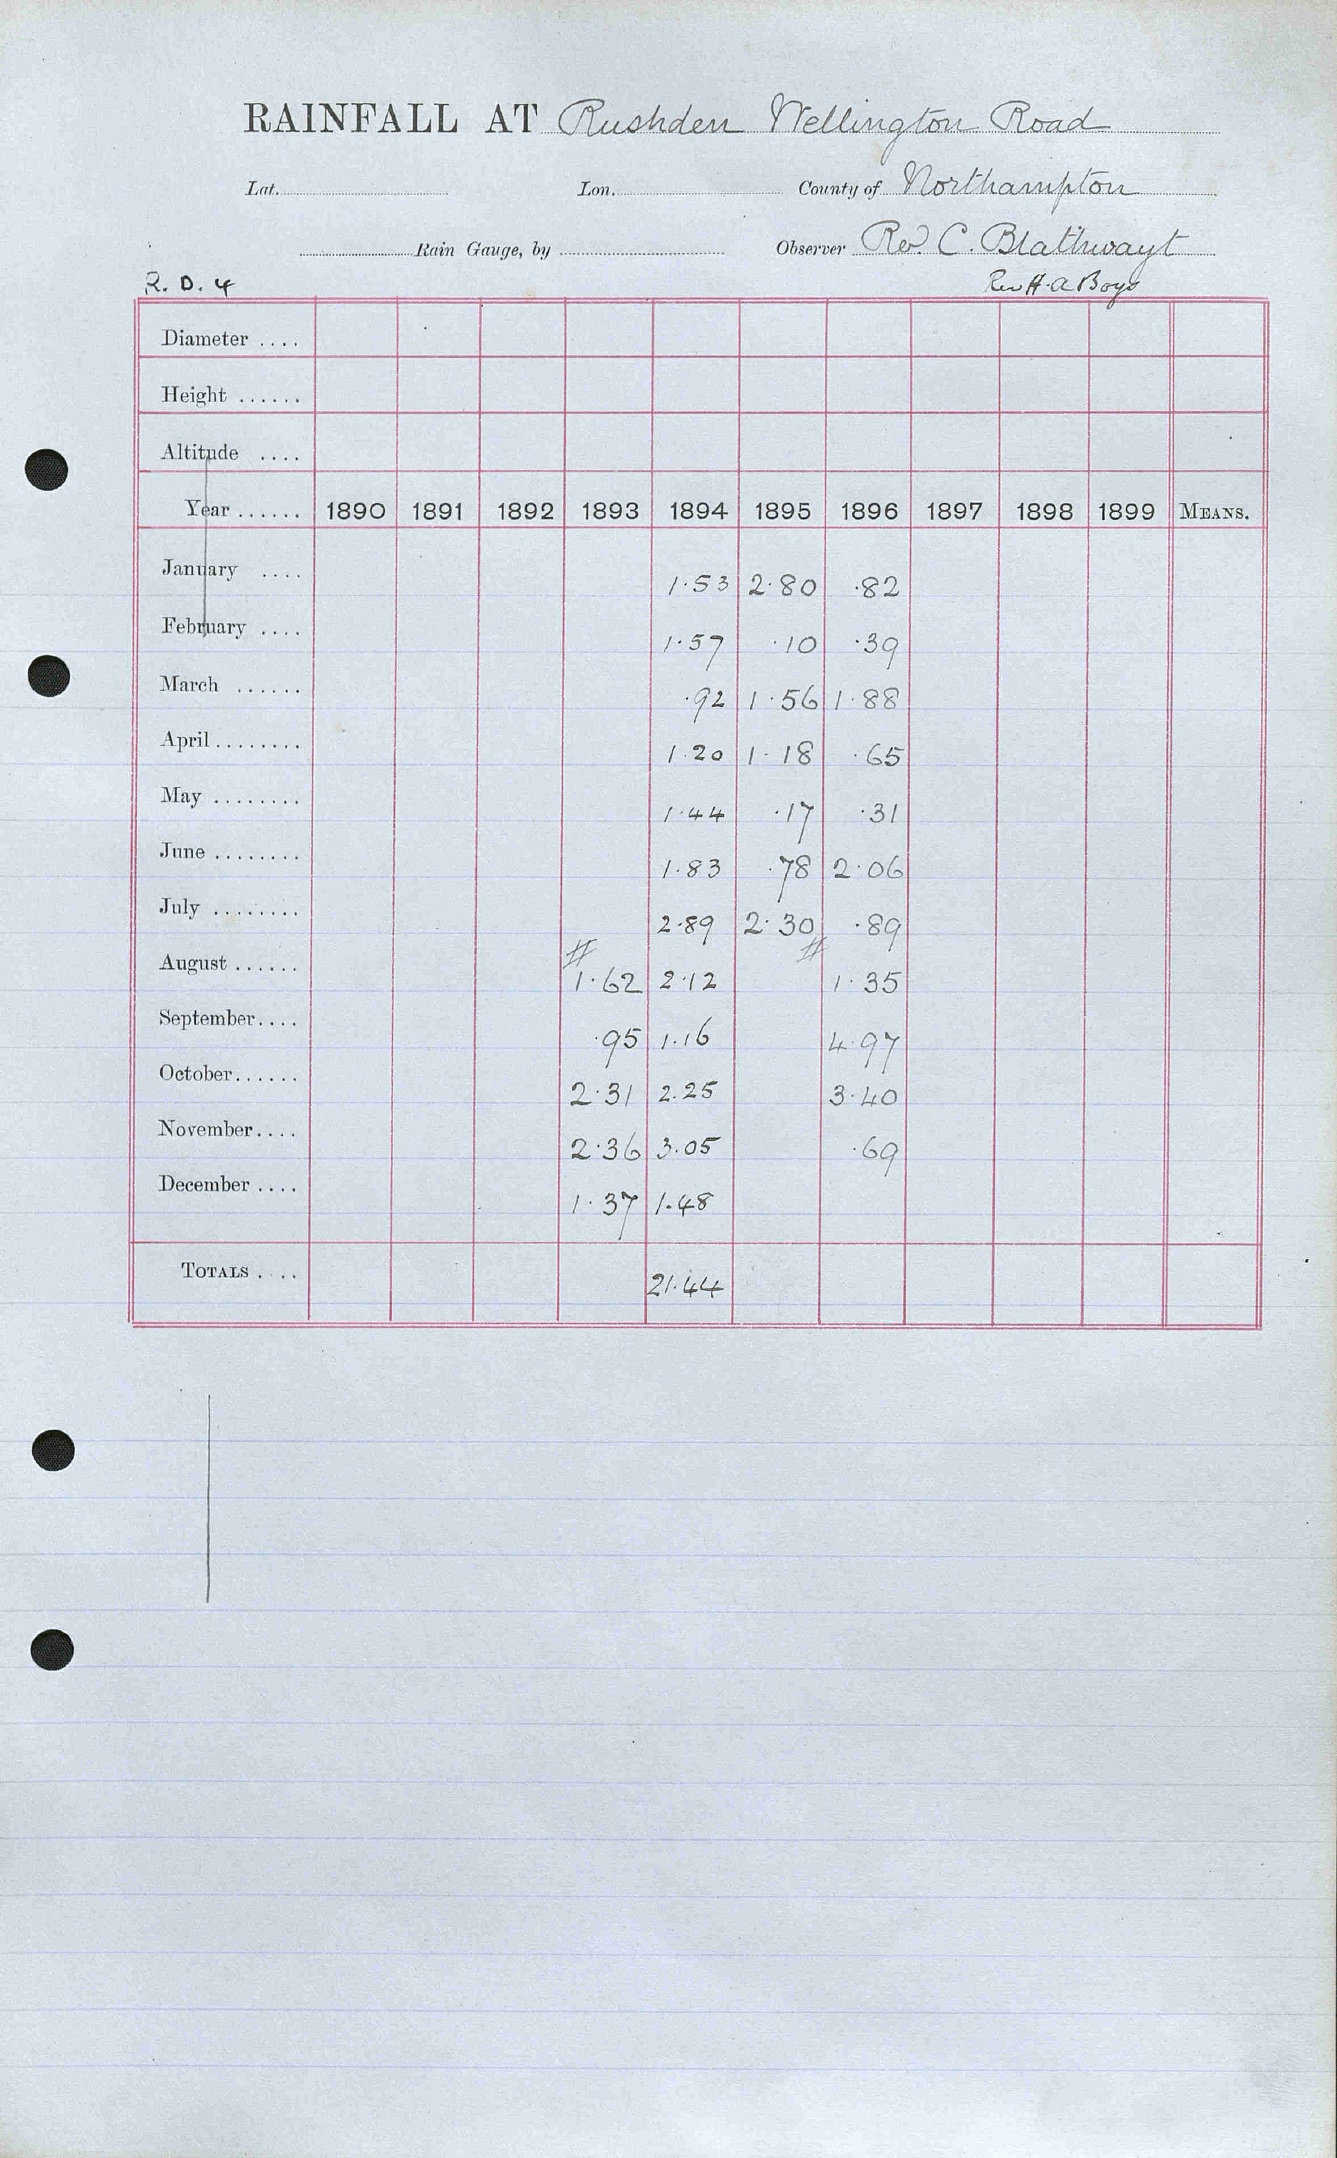 RAINFALL AT Rushden Wellington Road
Lat. Lon. County of Northampton
Rain Gauge, by Observer Rev. C. Blathwayt
R. D. 4 Rev H. A Boys
Diameter ....
Height ......
Altitude ....
Year ...... 1890 1891 1892 1893 1894 1895 1896 1897 1898 1899 MEANS.
January .... 1.53 2.80 .82
February .... 1.57 .10 .39
March ...... .92 1.56 1.88
April ........ 1.20 1.18 .65
May ........ 1.44 .17 .31
June ........ 1.83 .78 2.06
July ........ 2.89 2.30 .89
# #
August ...... 1.62 2.12 1.35
September.... .95 1.16 4.97
October...... 2.31 2.25 3.40
November.... 2.36 3.05 .69
December .... 1.37 1.48
TOTALS .... 21.44